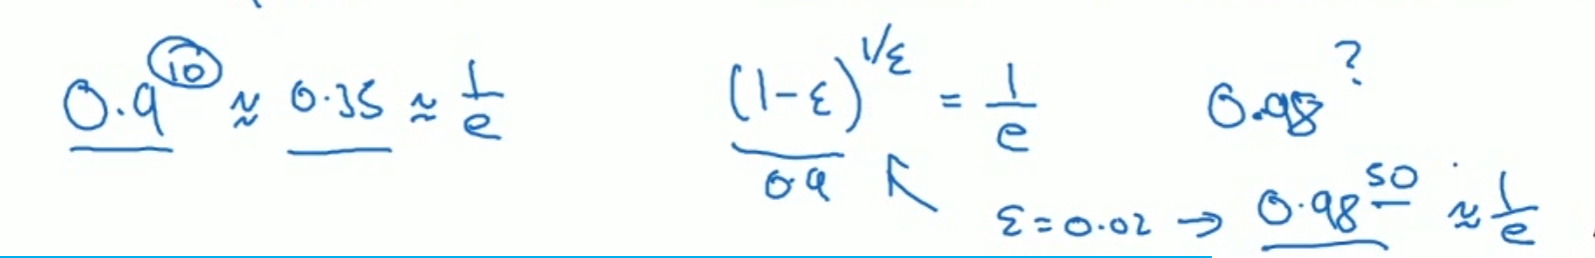 0.9^10 ≈ 0.35 ≈ 1/e
(1-ε)^1/ε = 1/e
0.9
0.98^?
ε=0.02 → 0.98^50 ≈ 1/e